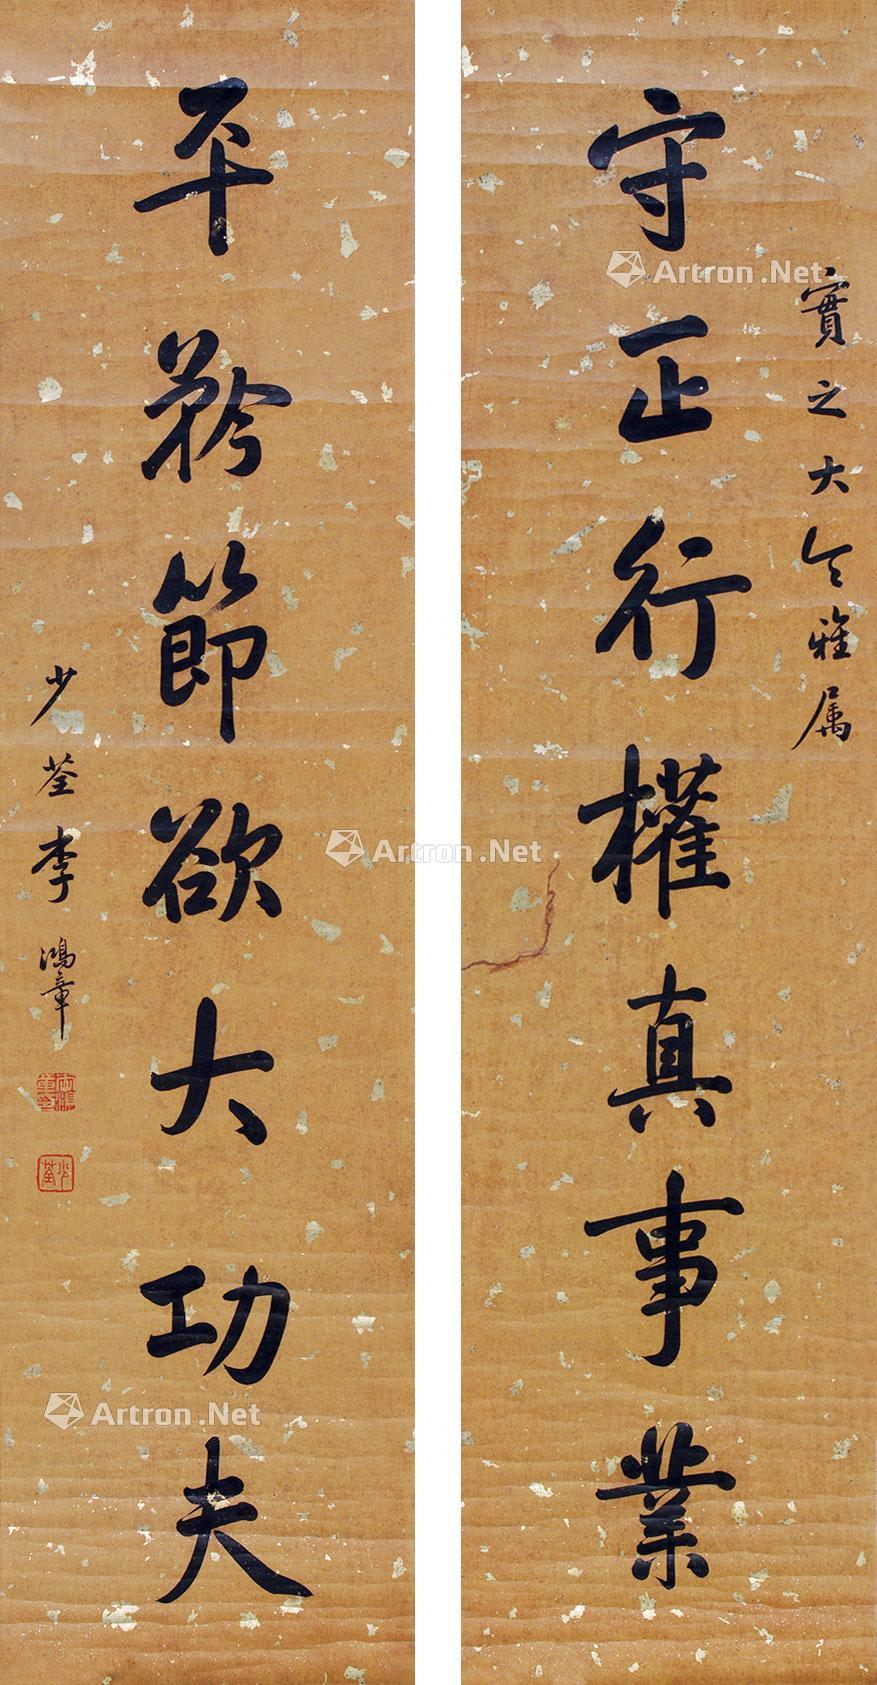 實之大令雅属
守正行權真事業
平矜節欲大功夫
少荃李鴻章
少荃
Artron.Net
Artron.Net
Artron.Net